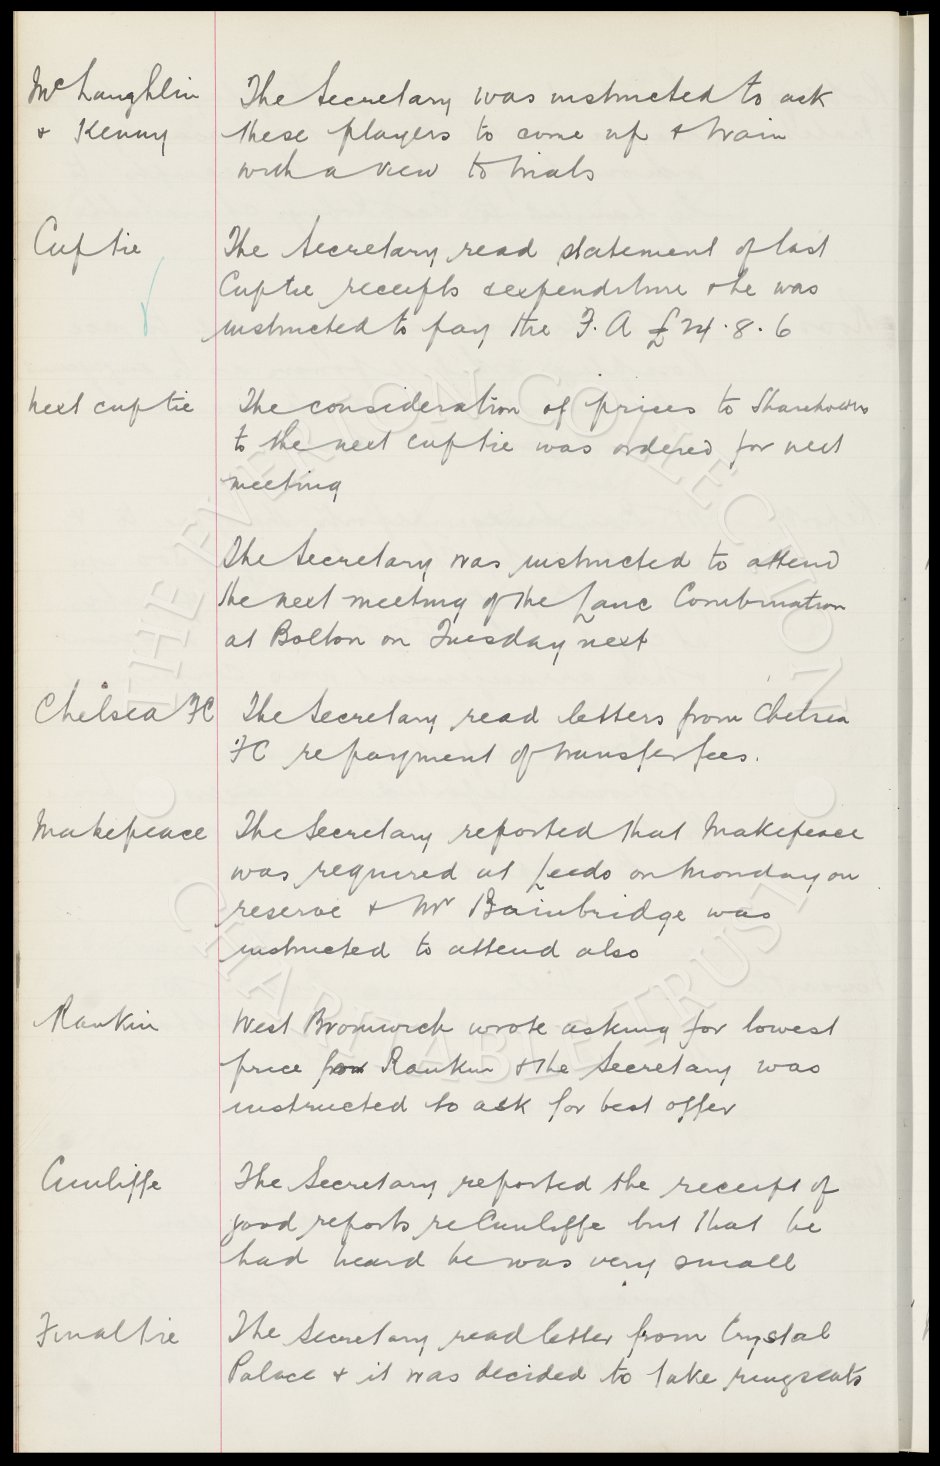 McLaughlin
& Kenny
The Secretary was instructed to ask
these players to come up & train
with a view to trials
Cuptie
The Secretary read statement of last
Cuptie receipts & expenditure & he was
instructed to pay the F.A £24.8.6
Next cuptie
The consideration of prices to Shareholders
to the next cuptie was ordered for next
meeting
The Secretary was instructed to attend
the next meeting of the Lanc Combination
at Bolton on Tuesday next
Chelsea FC
The Secretary read letters from Chelsea
FC re payment of transfer fees.
Makepeace
The Secretary reported that Makepeace
was required at Leeds on Monday on
reserve & Mr Bainbridge was
instructed to attend also
Rankin
West Bromwich wrote asking for lowest
price for Rankin & the Secretary was
instructed to ask for best offer
Cunliffe
The Secretary reported the receipt of
good reports re Cunliffe but that he
had heard he was very small
Final tie
The Secretary read letter from Crystal
Palace & it was decided to take ring seats
THE EVERTON COLLECTION
CHARITABLE TRUST